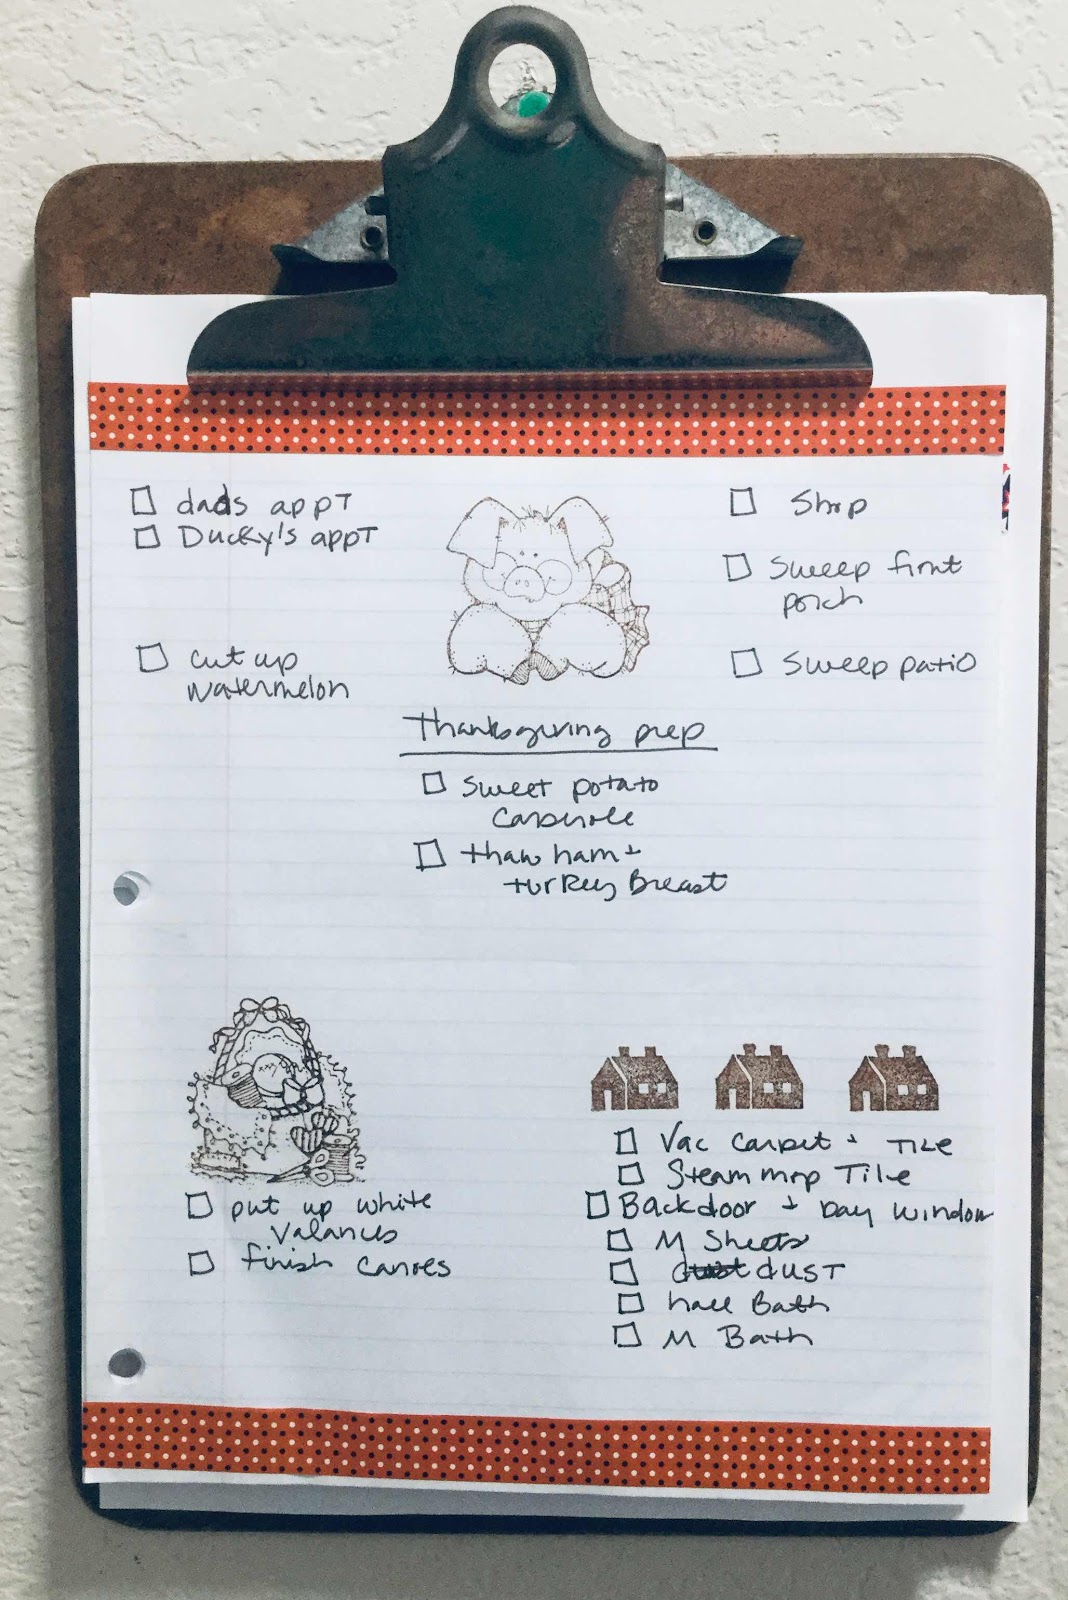 dads appT
Ducky's appT
cut up
watermelon
Shop
Sweep front
porch
Sweep patio
Thanksgiving prep
Sweet potato
Casserole
thaw ham +
turkey Breast
put up white
Valances
finish canres
Vac Carpet + TILE
Steam mop Tile
Backdoor + bay window
M Sheets
dust DUST
hall Bath
M Bath